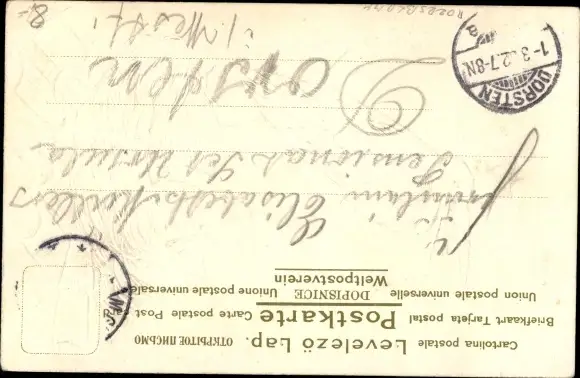 Cartolina postale Levelező Lap. ОТКРЫТОЕ ПИСЬМО
Briefkaart Tarjeta postal Postkarte Carte postale Post
Union postale universelle DOPISNICE Unione postale universale
Weltpostverein
Fräulein Elisabeth
Pensionat St. Ursula
Dorsten
i/Westf.
DORSTEN
1-3 02.7-8N.
8.-